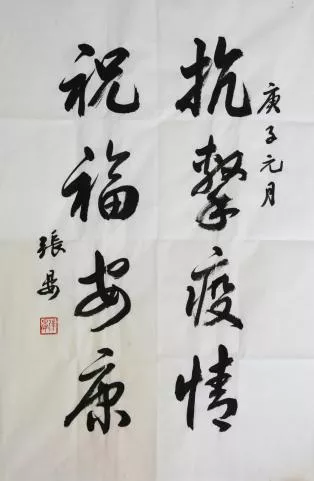 庚子元月
抗擊疫情
祝福安康
張